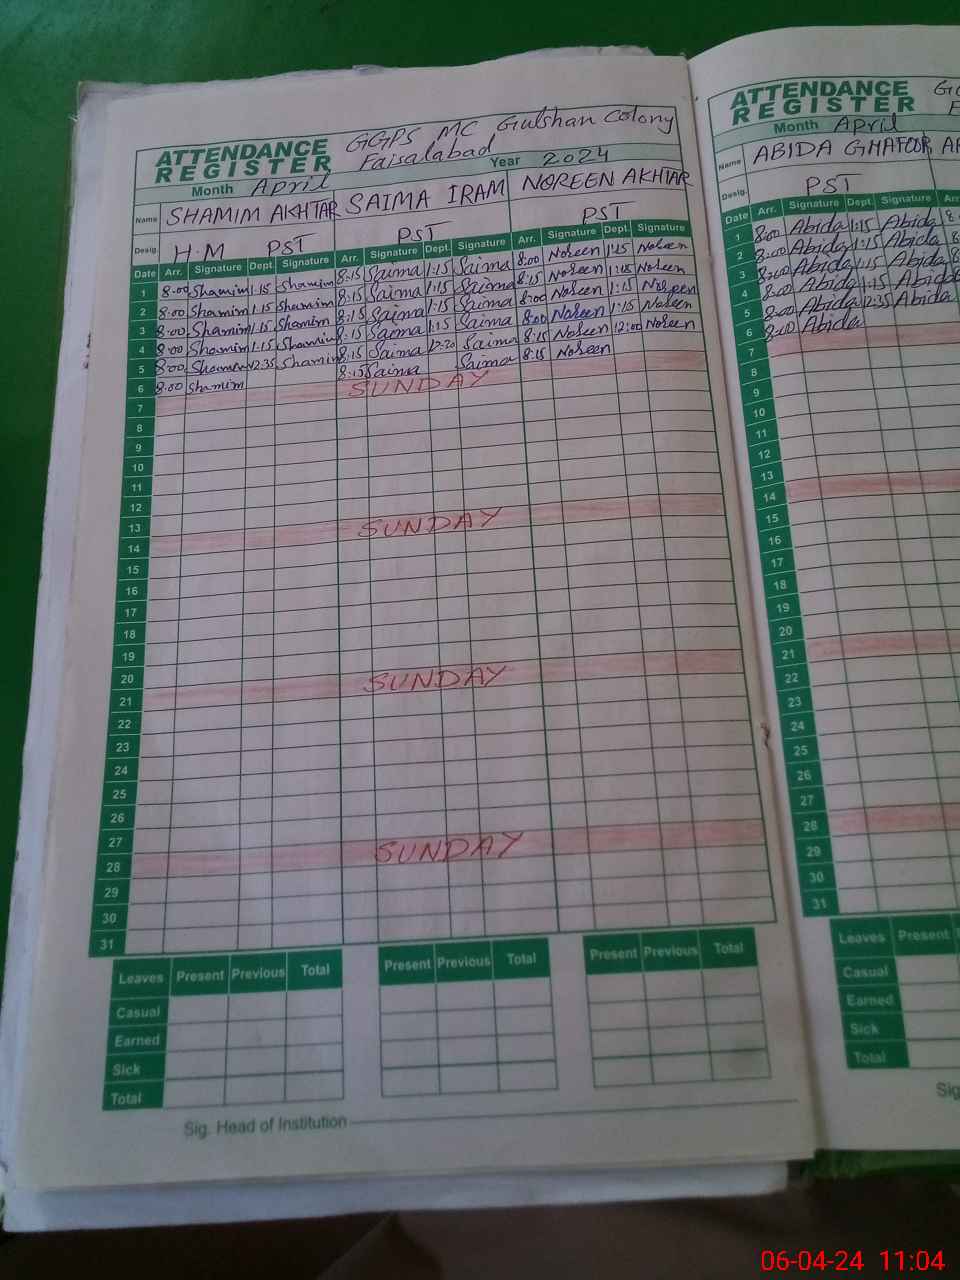 ATTENDANCE REGISTER GGPS MC Gulshan Colony Faisalabad
Month April Year 2024
Name SHAMIM AKHTAR SAIMA IRAM NOREEN AKHTAR
Desig. H.M PST PST PST
Date Arr. Signature Dept. Signature Arr. Signature Dept. Signature Arr. Signature Dept. Signature
1 8:00 Shamim 1:15 Shamim 8:15 Saima 1:15 Saima 8:00 Noreen 1:15 Noreen
2 8:00 Shamim 1:15 Shamim 8:15 Saima 1:15 Saima 8:15 Noreen 1:15 Noreen
3 8:00 Shamim 1:15 Shamim 8:15 Saima 1:15 Saima 8:00 Noreen 1:15 Noreen
4 8:00 Shamim 1:15 Shamim 8:15 Saima 1:15 Saima 8:00 Noreen 1:15 Noreen
5 8:00 Shamim 12:35 Shamim 8:15 Saima 12:20 Saima 8:15 Noreen 12:00 Noreen
6 8:00 Shamim 8:15 Saima Saima 8:15 Noreen
7 SUNDAY
8
9
10
11
12
13
14 SUNDAY
15
16
17
18
19
20
21 SUNDAY
22
23
24
25
26
27
28 SUNDAY
29
30
31
Leaves Present Previous Total Present Previous Total Present Previous Total
Casual
Earned
Sick
Total
Sig. Head of Institution
ATTENDANCE REGISTER
Month April
Name ABIDA GHAFOOR
Desig. PST
Date Arr. Signature Dept. Signature Arr.
1 8:00 Abida 1:15 Abida
2 8:00 Abida 1:15 Abida
3 8:00 Abida 1:15 Abida
4 8:00 Abida 1:15 Abida
5 8:00 Abida 12:35 Abida
6 8:00 Abida
7
8
9
10
11
12
13
14
15
16
17
18
19
20
21
22
23
24
25
26
27
28
29
30
31
Leaves Present
Casual
Earned
Sick
Total
Sig
06-04-24 11:04